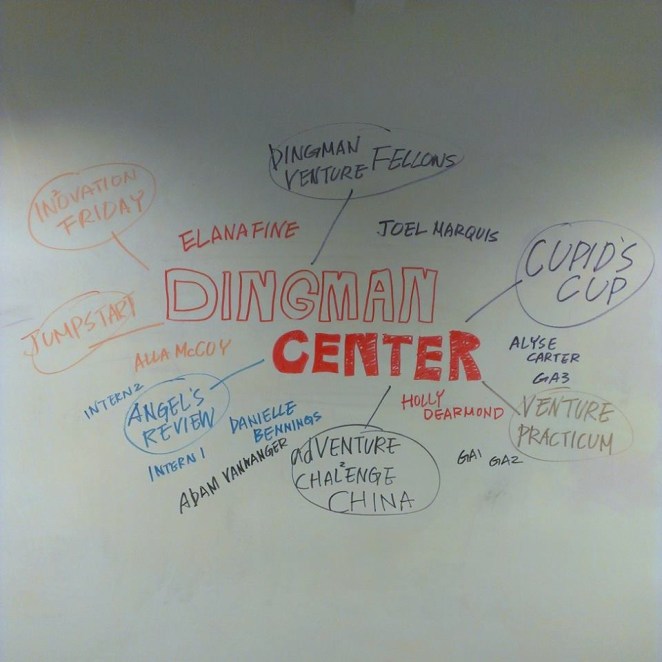 DINGMAN
VENTURE FELLOWS
INOVATION
FRIDAY
ELANAFINE
JOEL MARQUIS
CUPID'S
CUP
DINGMAN
CENTER
JUMPSTART
ALLA McCOY
ALYSE
CARTER
GA3
INTERN2
ANGEL'S
REVIEW
DANIELLE
BENNINGS
HOLLY
DEARMOND
VENTURE
PRACTICUM
INTERN 1
ADAM VANWANGER
adVENTURE
CHALENGE
CHINA
GA1 GA2